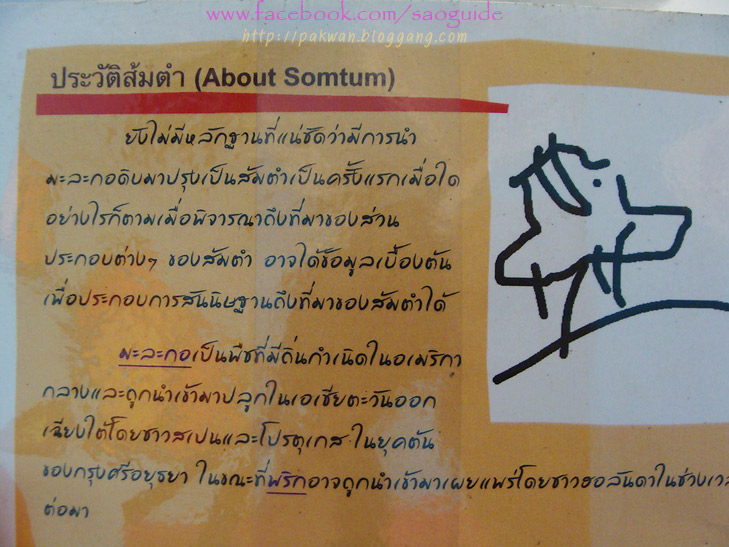 www.facebook.com/saoguide
http://pakwan.bloggang.com
ประวัติส้มตำ (About Somtum)
ยังไม่มีหลักฐานที่แน่ชัดว่ามีการนำ
มะละกอดิบมาปรุงเป็นส้มตำเป็นครั้งแรกเมื่อใด
อย่างไรก็ตามเมื่อพิจารณาถึงที่มาของส่วน
ประกอบต่างๆ ของส้มตำ อาจได้ข้อมูลเบื้องต้น
เพื่อประกอบการสันนิษฐานถึงที่มาของส้มตำได้
มะละกอเป็นพืชที่มีถิ่นกำเนิดในอเมริกา
กลางและถูกนำเข้ามาปลูกในเอเชียตะวันออก
เฉียงใต้โดยชาวสเปนและโปรตุเกส ในยุคต้น
ของกรุงศรีอยุธยา ในขณะที่พริกอาจถูกนำเข้ามาเผยแพร่โดยชาวฮอลันดาในช่วงเวล
ต่อมา